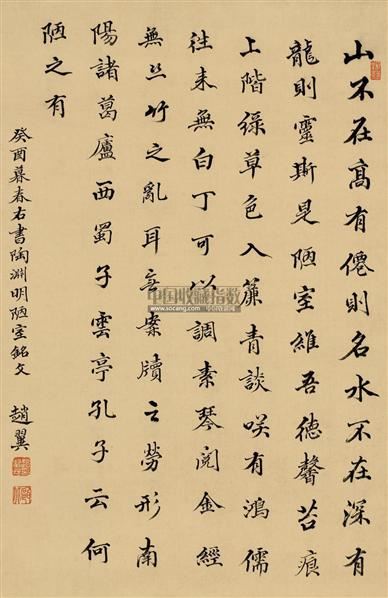 山不在高有僊則名水不在深有
龍則靈斯是陋室維吾德馨苔痕
上階綠草色入簾青談咲有鴻儒
往来無白丁可以調素琴閱金經
無丝竹之亂耳无案牘之勞形南
陽諸葛廬西蜀子雲亭孔子云何
陋之有
癸酉暮春右書陶淵明陋室銘文 趙翼
中国收藏指数
www.socang.com